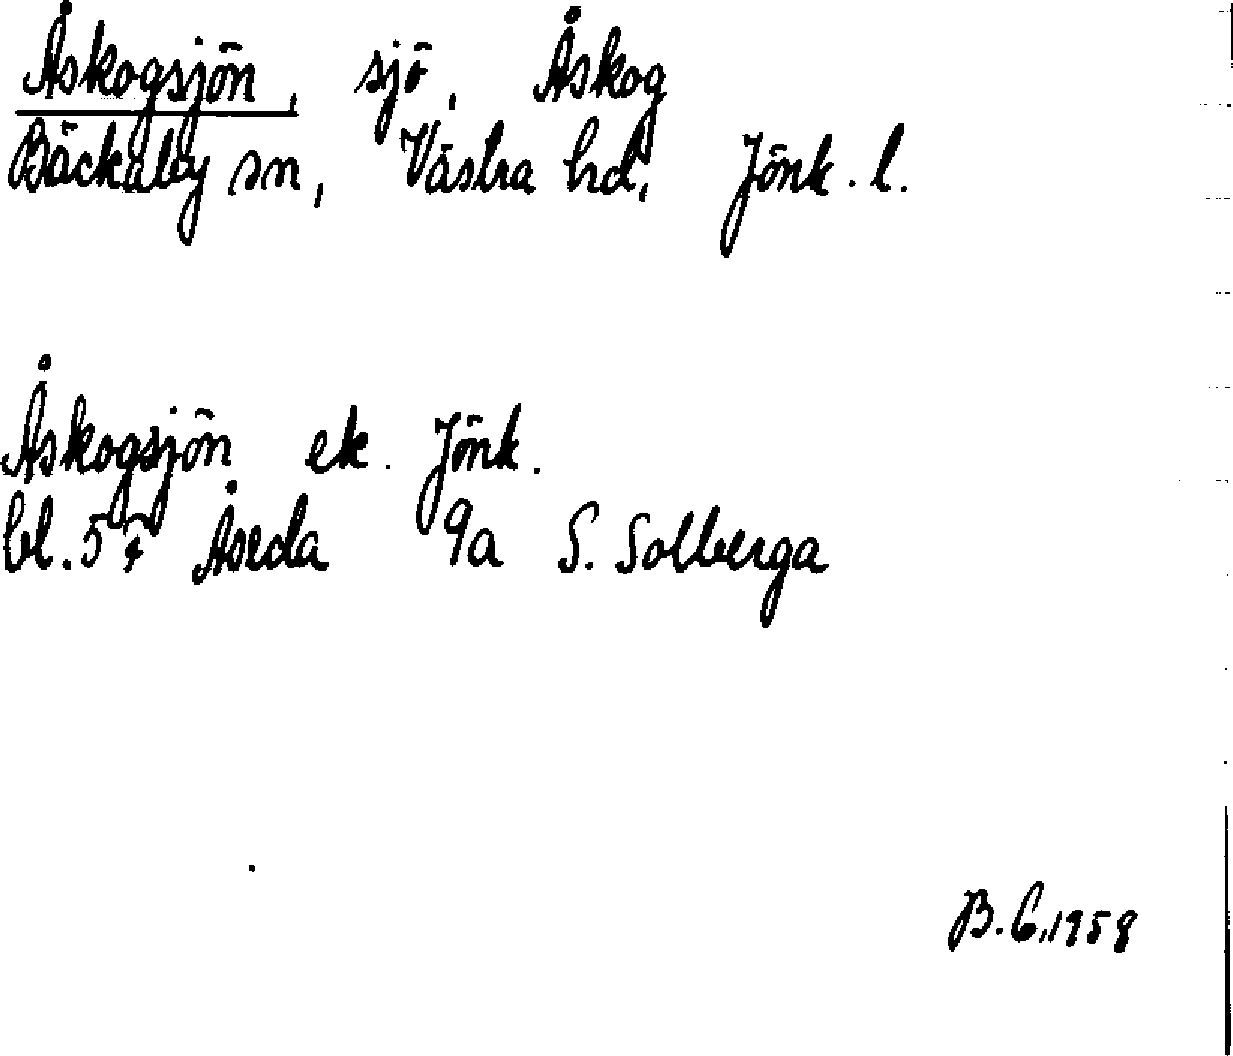 Åskogsjön, sjö, Åskog
Bäckaby sn, Västra hd, Jönk. l.
Åskogsjön ek. Jönk.
bl. 54 Åseda 9a S. Solberga
B. C, 1958